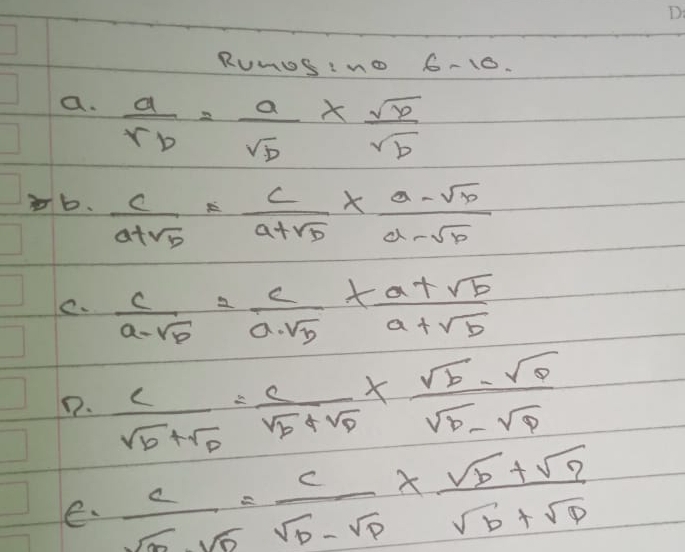 D
Rumus: no 6-10.
a. a/√b = a/√b × √b/√b
b. c/a+√b = c/a+√b × a-√b/a-√b
c. c/a-√b = c/a-√b × a+√b/a+√b
D. c/√b+√D = c/√b+√D × √b-√D/√b-√D
E. c/√b-√D = c/√b-√D × √b+√D/√b+√D